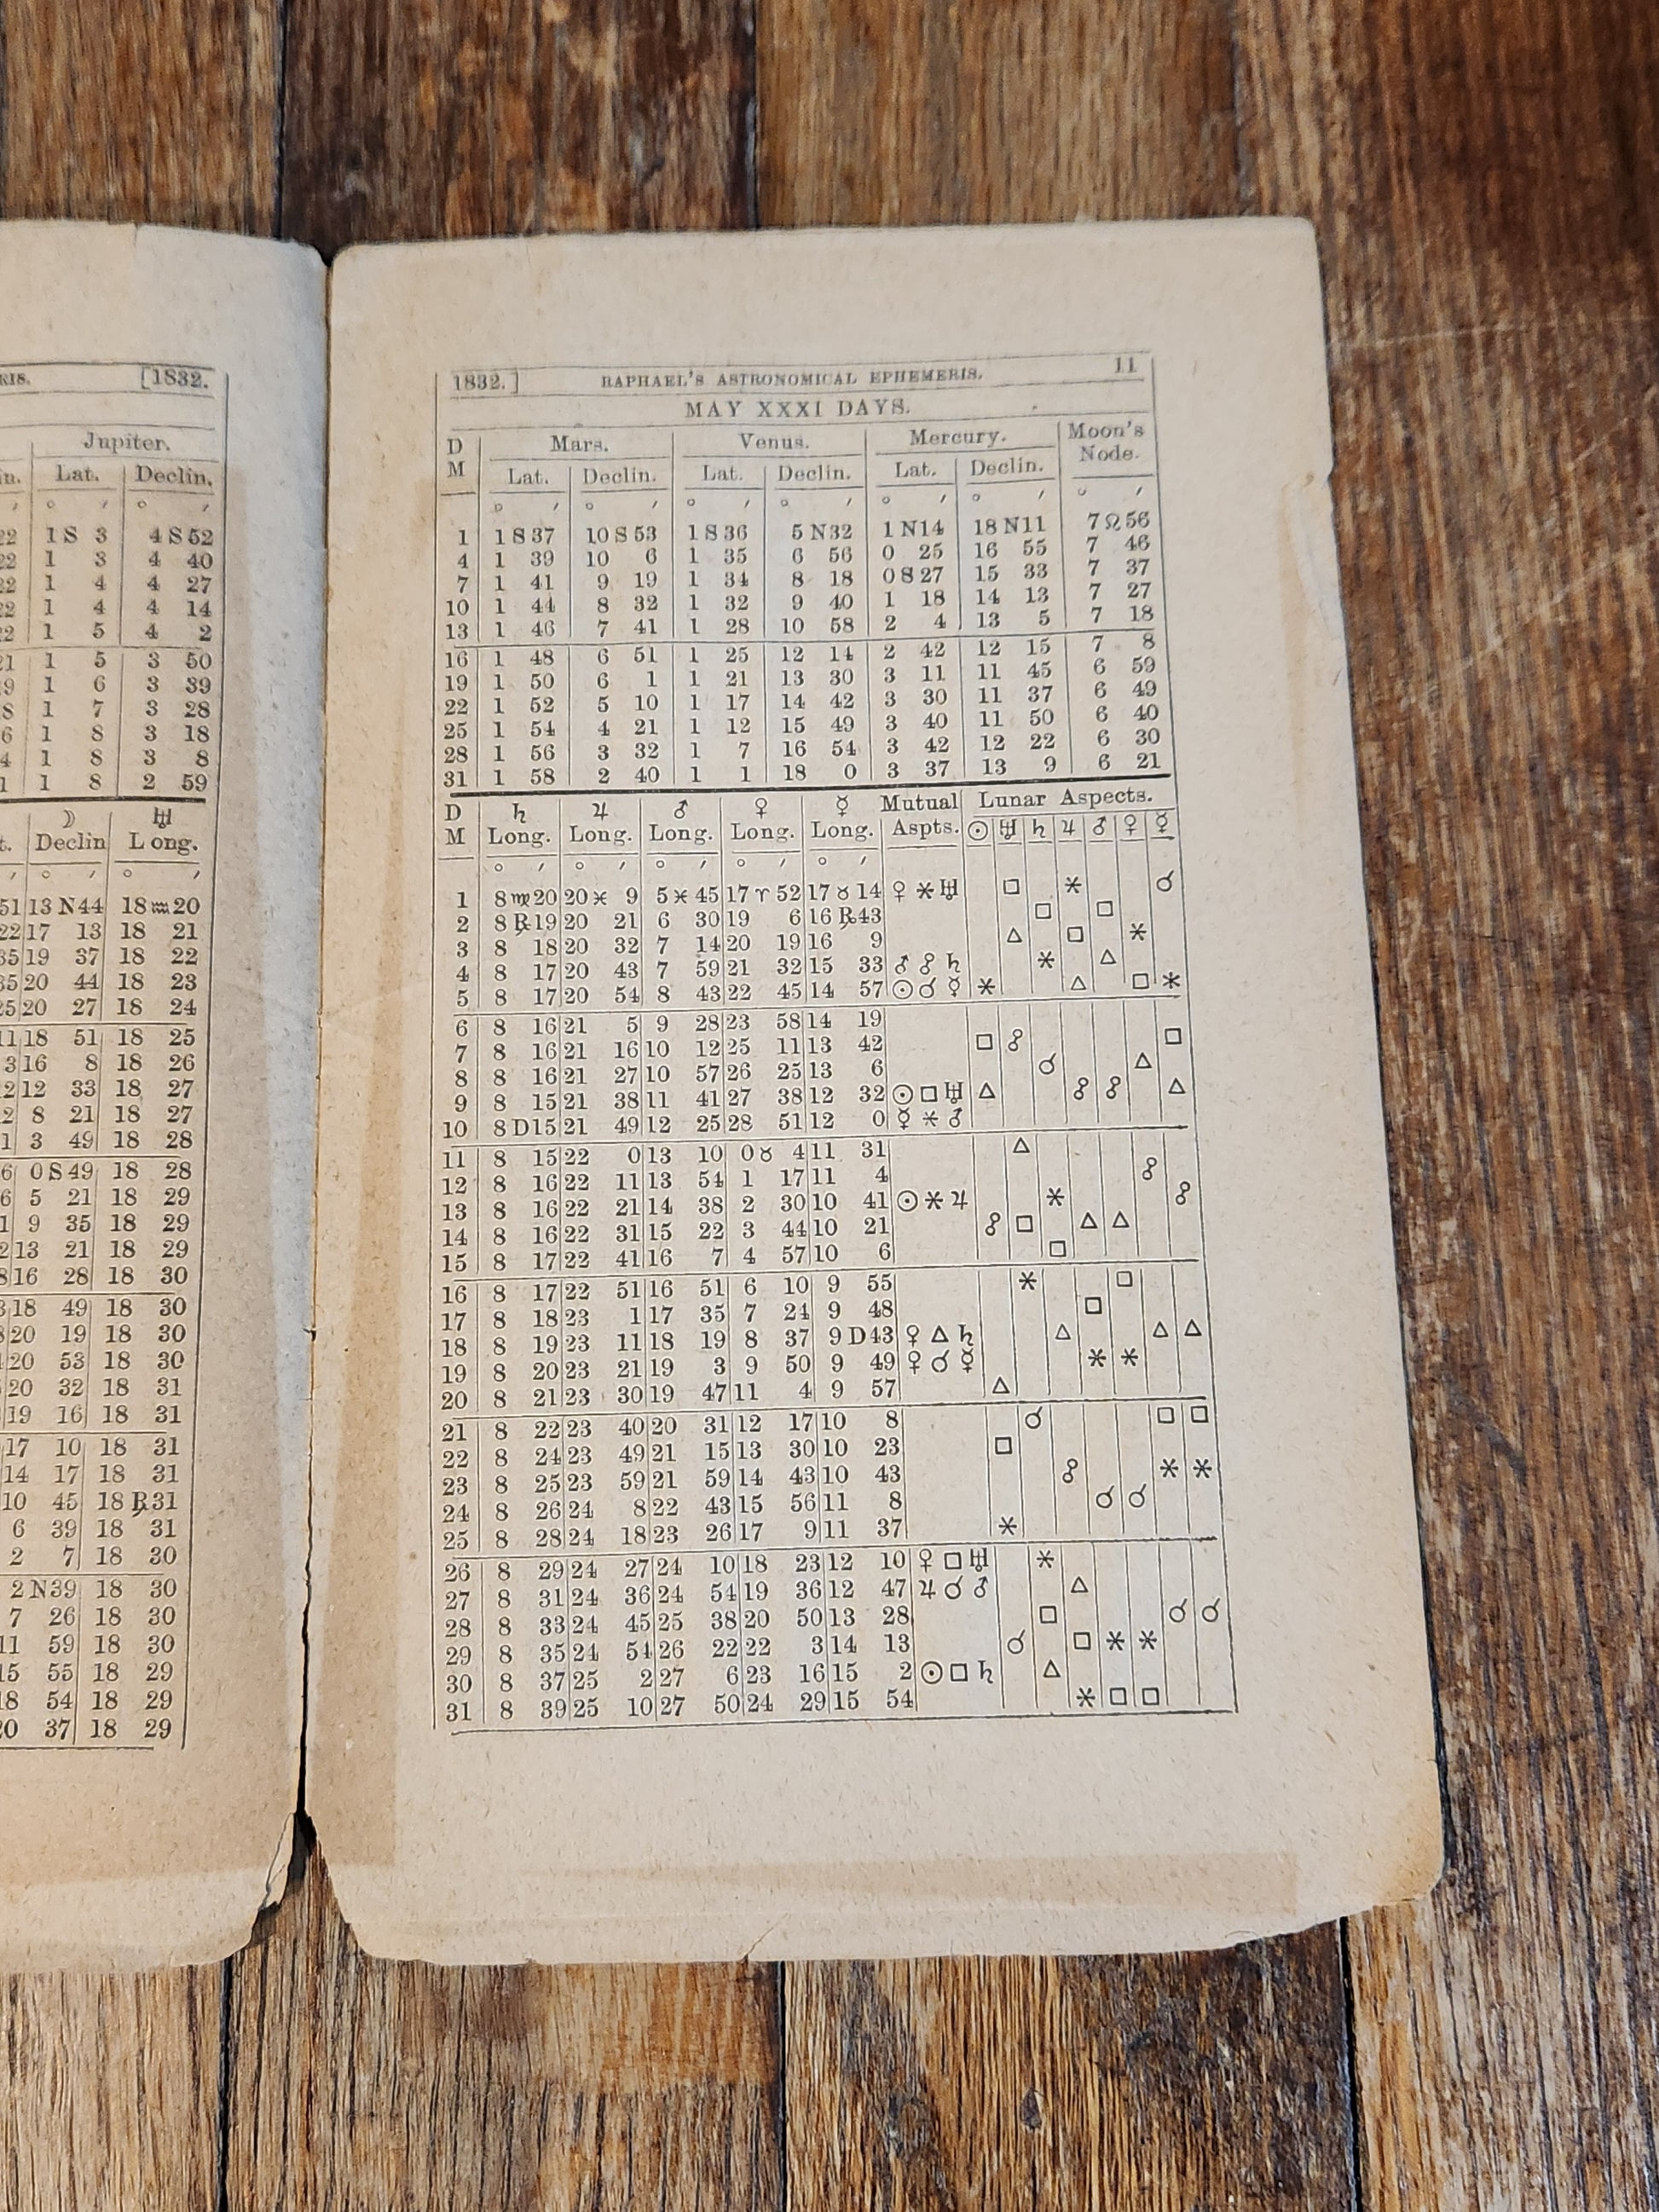 RIS. [1832.
Jupiter.
in. Lat. Declin.
′ ° ′ ° ′
22 1 S 3 4 S 52
22 1 3 4 40
22 1 4 4 27
22 1 4 4 14
22 1 5 4 2
21 1 5 3 50
19 1 6 3 39
8 1 7 3 28
6 1 8 3 18
4 1 8 3 8
1 1 8 2 59
☽ ♅
t. Declin Long.
′ ° ′ ° ′
51 13 N 44 18 ♒ 20
22 17 13 18 21
35 19 37 18 22
35 20 44 18 23
25 20 27 18 24
11 18 51 18 25
3 16 8 18 26
12 12 33 18 27
2 8 21 18 27
1 3 49 18 28
6 0 S 49 18 28
6 5 21 18 29
1 9 35 18 29
2 13 21 18 29
8 16 28 18 30
3 18 49 18 30
20 19 18 30
20 53 18 30
20 32 18 31
19 16 18 31
17 10 18 31
14 17 18 31
10 45 18 ℞ 31
6 39 18 31
2 7 18 30
2 N 39 18 30
7 26 18 30
11 59 18 30
15 55 18 29
18 54 18 29
20 37 18 29
1832.] RAPHAEL'S ASTRONOMICAL EPHEMERIS. 11
MAY XXXI DAYS.
D M Mars. Venus. Mercury. Moon's Node.
Lat. Declin. Lat. Declin. Lat. Declin.
° ′ ° ′ ° ′ ° ′ ° ′ ° ′ ° ′
1 1 S 37 10 S 53 1 S 36 5 N 32 1 N 14 18 N 11 7 ♌ 56
4 1 39 10 6 1 35 6 56 0 25 16 55 7 46
7 1 41 9 19 1 34 8 18 0 S 27 15 33 7 37
10 1 44 8 32 1 32 9 40 1 18 14 13 7 27
13 1 46 7 41 1 28 10 58 2 4 13 5 7 18
16 1 48 6 51 1 25 12 14 2 42 12 15 7 8
19 1 50 6 1 1 21 13 30 3 11 11 45 6 59
22 1 52 5 10 1 17 14 42 3 30 11 37 6 49
25 1 54 4 21 1 12 15 49 3 40 11 50 6 40
28 1 56 3 32 1 7 16 54 3 42 12 22 6 30
31 1 58 2 40 1 1 18 0 3 37 13 9 6 21
D M ♄ ♃ ♂ ♀ ☿ Mutual Lunar Aspects.
Long. Long. Long. Long. Long. Aspts. ☉ ♅ ♄ ♃ ♂ ♀ ☿
° ′ ° ′ ° ′ ° ′ ° ′
1 8 ♍ 20 20 ♓ 9 5 ♓ 45 17 ♈ 52 17 ♉ 14 ♀ ⚹ ♅ □ ⚹ ☌
2 8 ℞ 19 20 21 6 30 19 6 16 ℞ 43 □ □
3 8 18 20 32 7 14 20 19 16 9 △ □ ⚹
4 8 17 20 43 7 59 21 32 15 33 ♂ ☍ ♄ ⚹ △
5 8 17 20 54 8 43 22 45 14 57 ☉ ☌ ☿ ⚹ △ □ ⚹
6 8 16 21 5 9 28 23 58 14 19 □
7 8 16 21 16 10 12 25 11 13 42 □ ☍
8 8 16 21 27 10 57 26 25 13 6 ☌ △
9 8 15 21 38 11 41 27 38 12 32 ☉ □ ♅ △ ☍ ☍ △
10 8 D 15 21 49 12 25 28 51 12 0 ☿ ⚹ ♂
11 8 15 22 0 13 10 0 ♉ 4 11 31 △
12 8 16 22 11 13 54 1 17 11 4 ☍
13 8 16 22 21 14 38 2 30 10 41 ☉ ⚹ ♃ ⚹ ☍
14 8 16 22 31 15 22 3 44 10 21 ☍ □ △ △
15 8 17 22 41 16 7 4 57 10 6 □
16 8 17 22 51 16 51 6 10 9 55 ⚹ □
17 8 18 23 1 17 35 7 24 9 48 □
18 8 19 23 11 18 19 8 37 9 D 43 ♀ △ ♄ △ △ △
19 8 20 23 21 19 3 9 50 9 49 ♀ ☌ ☿ ⚹ ⚹
20 8 21 23 30 19 47 11 4 9 57 △
21 8 22 23 40 20 31 12 17 10 8 ☌ □ □
22 8 24 23 49 21 15 13 30 10 23 □
23 8 25 23 59 21 59 14 43 10 43 ☍ ⚹ ⚹
24 8 26 24 8 22 43 15 56 11 8 ☌ ☌
25 8 28 24 18 23 26 17 9 11 37 ⚹
26 8 29 24 27 24 10 18 23 12 10 ♀ □ ♅ ⚹
27 8 31 24 36 24 54 19 36 12 47 ♃ ☌ ♂ △
28 8 33 24 45 25 38 20 50 13 28 □ ☌ ☌
29 8 35 24 54 26 22 22 3 14 13 ☌ □ ⚹ ⚹
30 8 37 25 2 27 6 23 16 15 2 ☉ □ ♄ △
31 8 39 25 10 27 50 24 29 15 54 ⚹ □ □